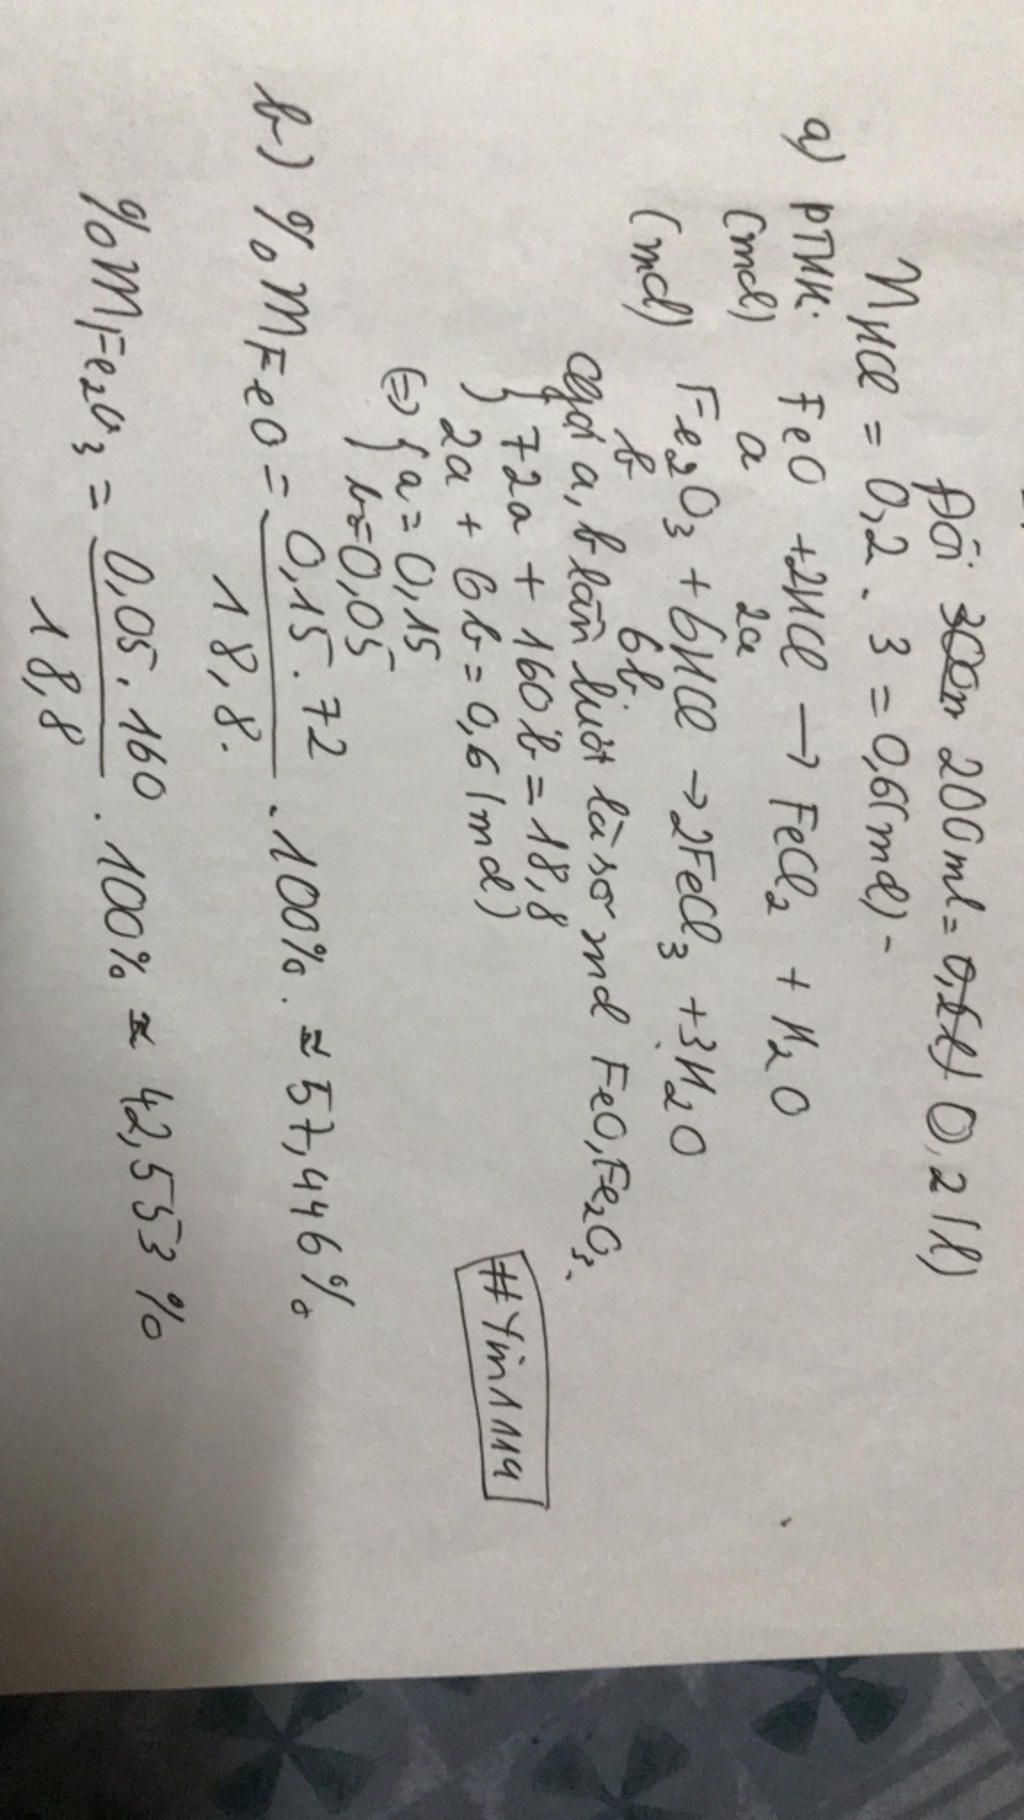 Đổi 200ml = 0,2 (l)
nHCl = 0,2 . 3 = 0,6 (mol) -
a) PTHH: FeO + 2HCl → FeCl₂ + H₂O
(mol) a 2a
Fe₂O₃ + 6HCl → 2FeCl₃ + 3H₂O
(mol) b 6b
Gọi a, b lần lượt là số mol FeO, Fe₂O₃.
{ 72a + 160b = 18,8
2a + 6b = 0,6 (mol)
(=) { a = 0,15
b = 0,05
#Yin1114
b) %mFeO = 0,15 . 72 / 18,8 . 100% ≈ 57,446%
%mFe₂O₃ = 0,05 . 160 / 18,8 . 100% ≈ 42,553 %